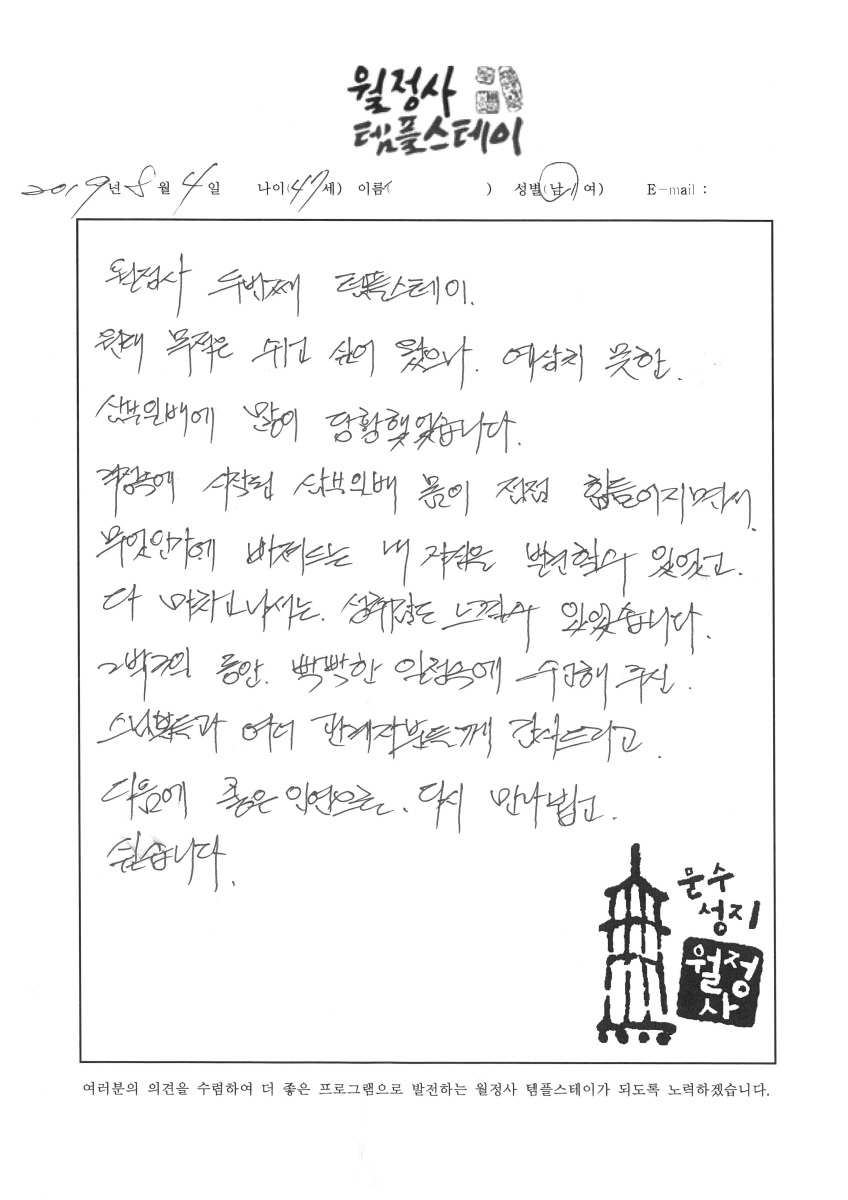 월정사
템플스테이
2019년 8월 4일 나이(47세) 이름( ) 성별(남/여) E-mail :
월정사 두번째 템플스테이.
원래 목적은 쉬고 싶어 왔으나. 예상치 못한.
삼부의배에 많이 당황했었습니다.
걱정속에 시작된 삼부의배 몸이 점점 힘들어지면서.
무엇인가에 빠져드는 내 자신을 발견할수 있었고.
다 마치고나서는. 성취감도 느낄수 있었습니다.
2박3일 동안. 빡빡한 일정속에 수고해 주신.
스님분들과 여러 관계자분들께 감사드리고.
다음에 좋은 인연으로. 다시 만나뵙고.
싶습니다.
문수
성지
월정
사
여러분의 의견을 수렴하여 더 좋은 프로그램으로 발전하는 월정사 템플스테이가 되도록 노력하겠습니다.